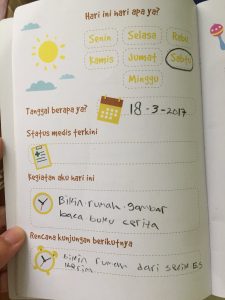 Hari ini hari apa ya?
Senin Selasa Rabu
Kamis Jumat Sabtu
Minggu
Tanggal berapa ya? 18-3-2017
Status medis terkini
Kegiatan aku hari ini
Bikin rumah. gambar
baca buku cerita
Rencana kunjungan berikutnya
Bikin rumah dari stik ES